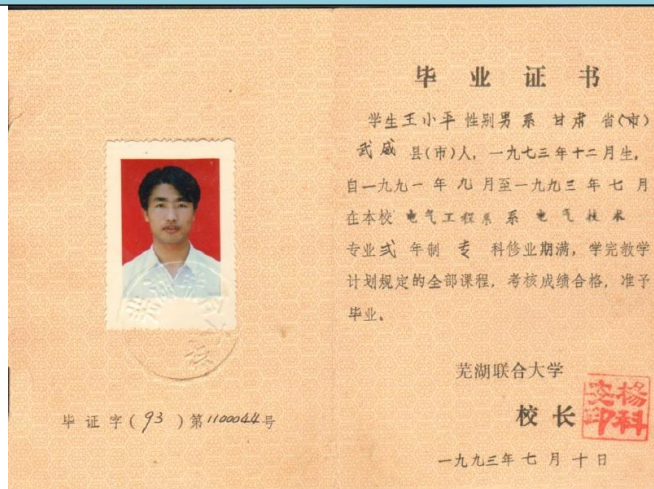 毕业证书
学生王小平性别男系甘肃省(市)
武威县(市)人，一九七三年十二月生，
自一九九一年九月至一九九三年七月
在本校电气工程系系电气技术
专业弍年制专科修业期满，学完教学
计划规定的全部课程，考核成绩合格，准予
毕业。
芜湖联合大学
校长
杨科安印
一九九三年七月十日
毕证字(93)第1100044号